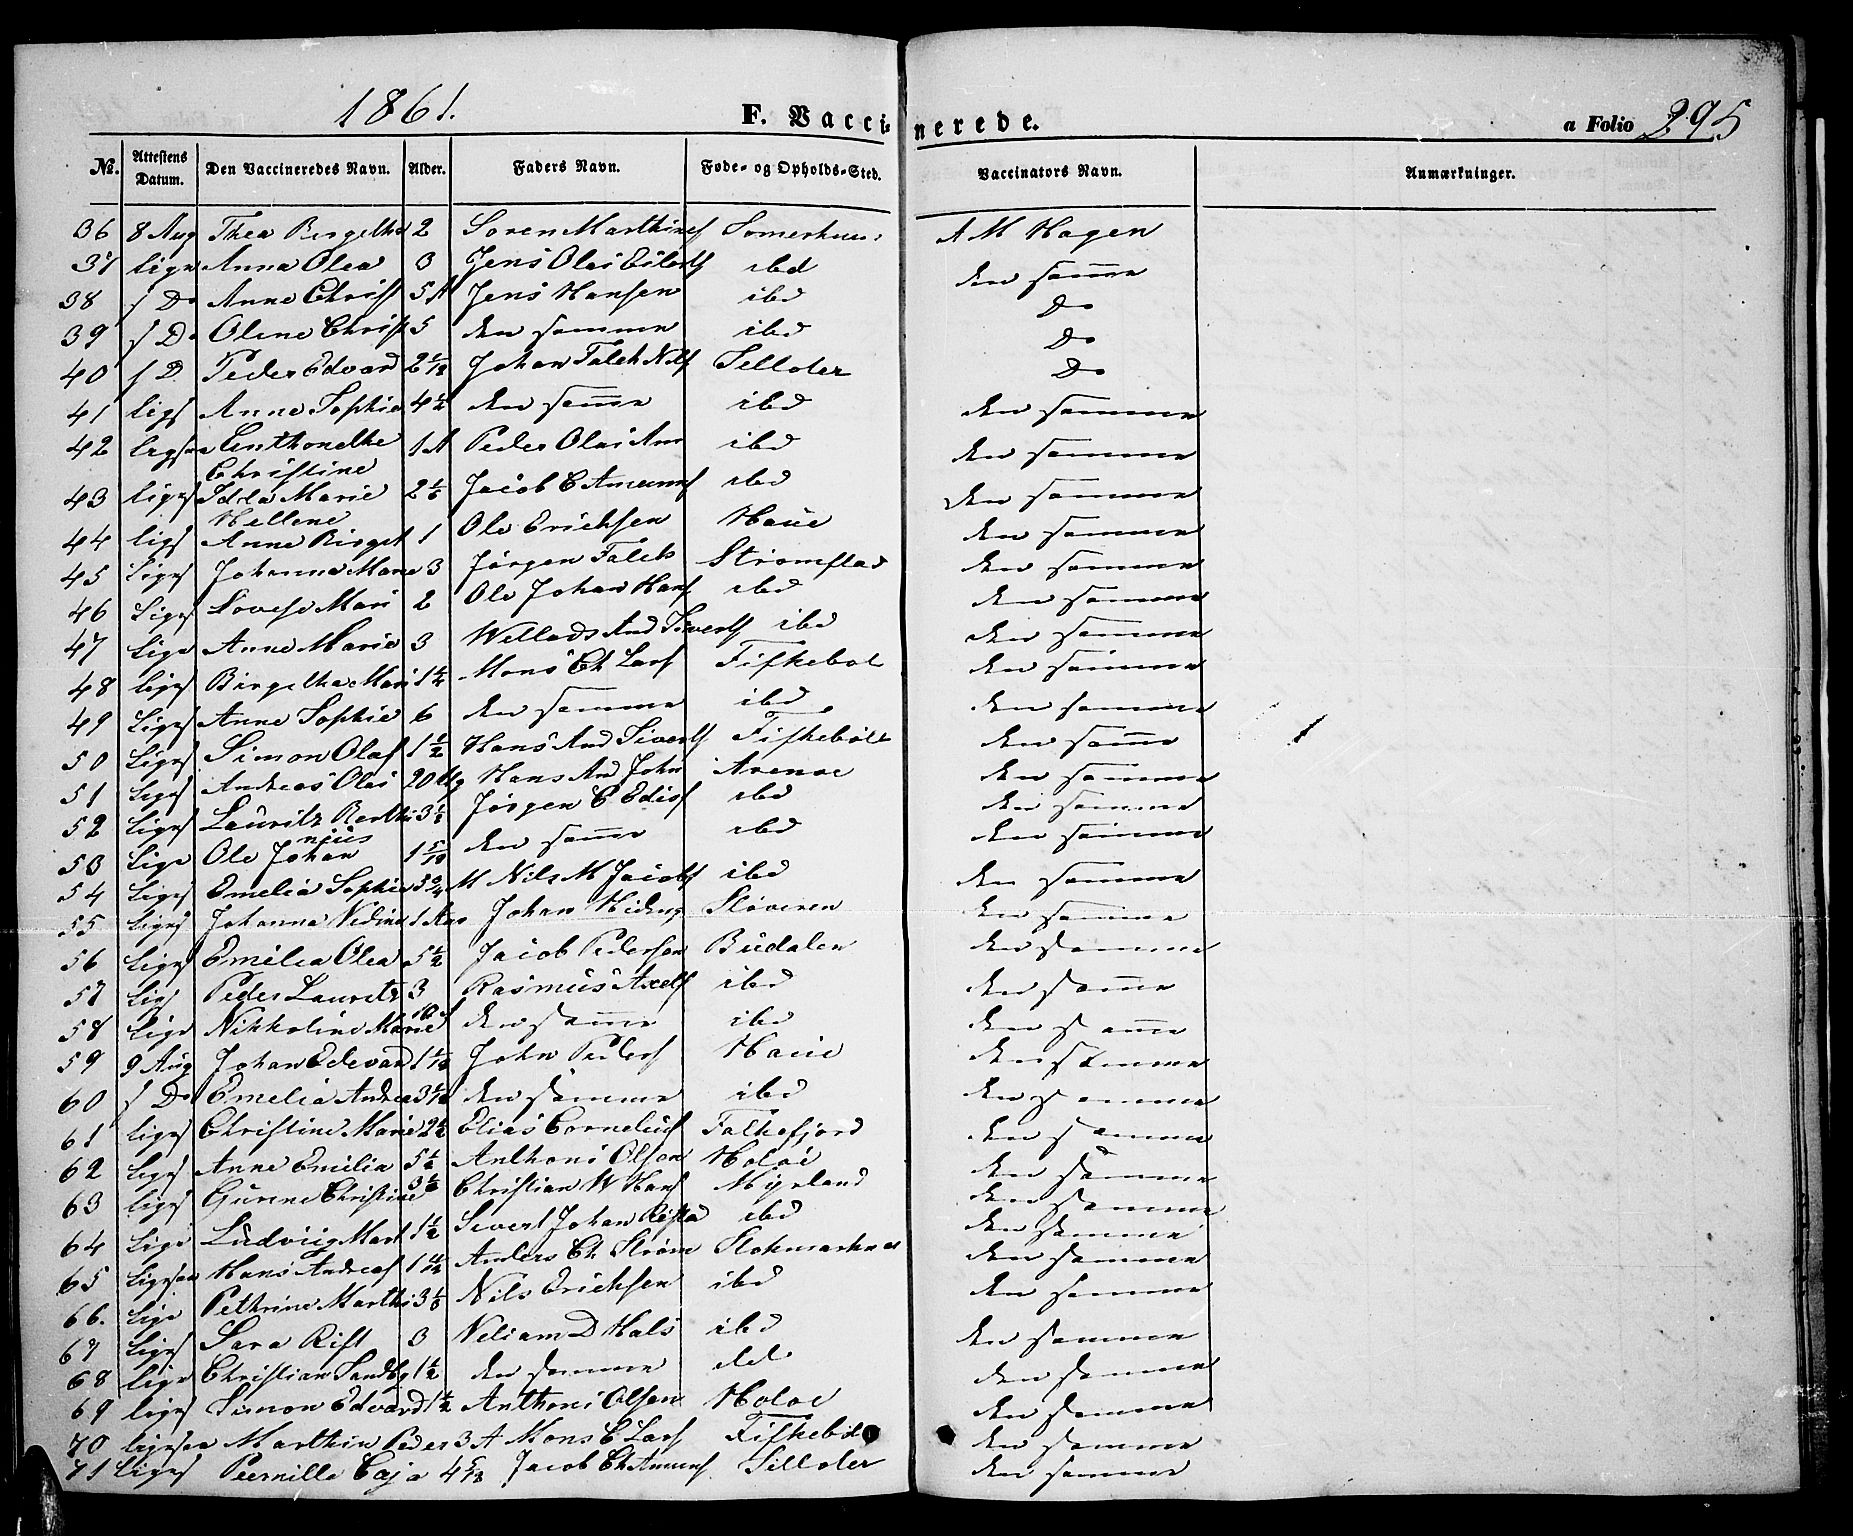 1861.
F. Vaccinerede.
a Folio 295
No. Attestens Datum. Den Vaccineredes Navn. Alder. Faders Navn. Føde- og Opholds-Sted. Vaccinators Navn. Anmærkninger.
36 8 Aug Thea Bergethe 2 Soren Marthines A M Hagen
37 lign Anna Olea 3 Jens Olai ibd den samme
38 s Do Anne Christ 5 A Jens Hansen ibd Do
39 s Do Oline Christ 5 den samme ibd Do
40 s D. Peder Edvard 2 1/12 Johan Falch Nils Selloter Do
41 ligs Anne Sophie 4 1/2 den samme ibd den samme
42 ligsaa Anthonethe 1 A Peder Olai Am ibd den samme
Christine
43 ligs Idda Marie 2 1/6 Jacob C Amuns ibd den samme
Hellene
44 ligs Anne Birget 1 Ole Erichsen Haüe den samme
45 Ligs Johanna Marie 3 Jørgen Falch Strømstad den samme
46 Ligs Lovise Mari 2 Ole Johan Hans ibd den samme
47 Lige Anne Marie 3 Wellads And Siverts ibd den samme
48 ligs Birgethe Mari 1 1/4 Mons Ch Lars Fiskebøl den samme
49 Ligs Anne Sophie 6 den samme ibd den samme
50 Ligs Simon Olaf 1 1/2 Hans And Siverts Fiskebøl den samme
51 Ligs Andreas Olai 20 Ug Hans And John Arenøe den samme
52 Ligs Lauritz Berthi 3 1/2 Jørgen C Edis ibd den samme
nius
53 Lige Ole Johan 1 5/12 den samme ibd den samme
54 Ligs Emelia Sophie 5 3/4 M Nils M Jacobs ibd den samme
55 Ligs Johanna Nedina 1 Aar Johan Sløveren den samme
56 Ligs Emilia Olea 5 1/2 Jacob Pedersen Büdalen den samme
57 Ligs Peder Lauritz 3 Rasmüs Axels ibd den samme
58 Lige Nikkoline Marie den samme ibd den samme
59 9 Aug Johan Edevard 1 1/12 John Peders Haüe den samme
60 s Do Emelia Andrea 3 1/12 den samme ibd den samme
61 ligs Christine Marie 2 1/2 Elias Cornelius Falkefjord den samme
62 Ligs Anne Emilia 5 1/2 Anthoni Olsen Holøe den samme
63 ligs Günne Christine Christian W Hans Myrland den samme
64 Lige Ludvig Mart 1 1/2 Sivert Johan ibd den samme
65 Ligesaa Hans Andreas Anders Ch Strøm Stokmarknes den samme
66. Lige Pethrine Marthi 3 1/6 Nils Erichsen ibd den samme
67 Ligs Sara Rist 3 Neliam D Hals ibd den samme
68 Lige Christian Sandbg 1 1/2 den samme den samme
69 ligs Simon Edvard 1 1/2 Anthoni Olsen Holoe den samme
70 ligesaa Marthin Peder 3 A Mons C Lars Fiskebøl den samme
71 Ligs Peernille Caja 4 5/12 Jacob Ch Amuns Selloter den samme